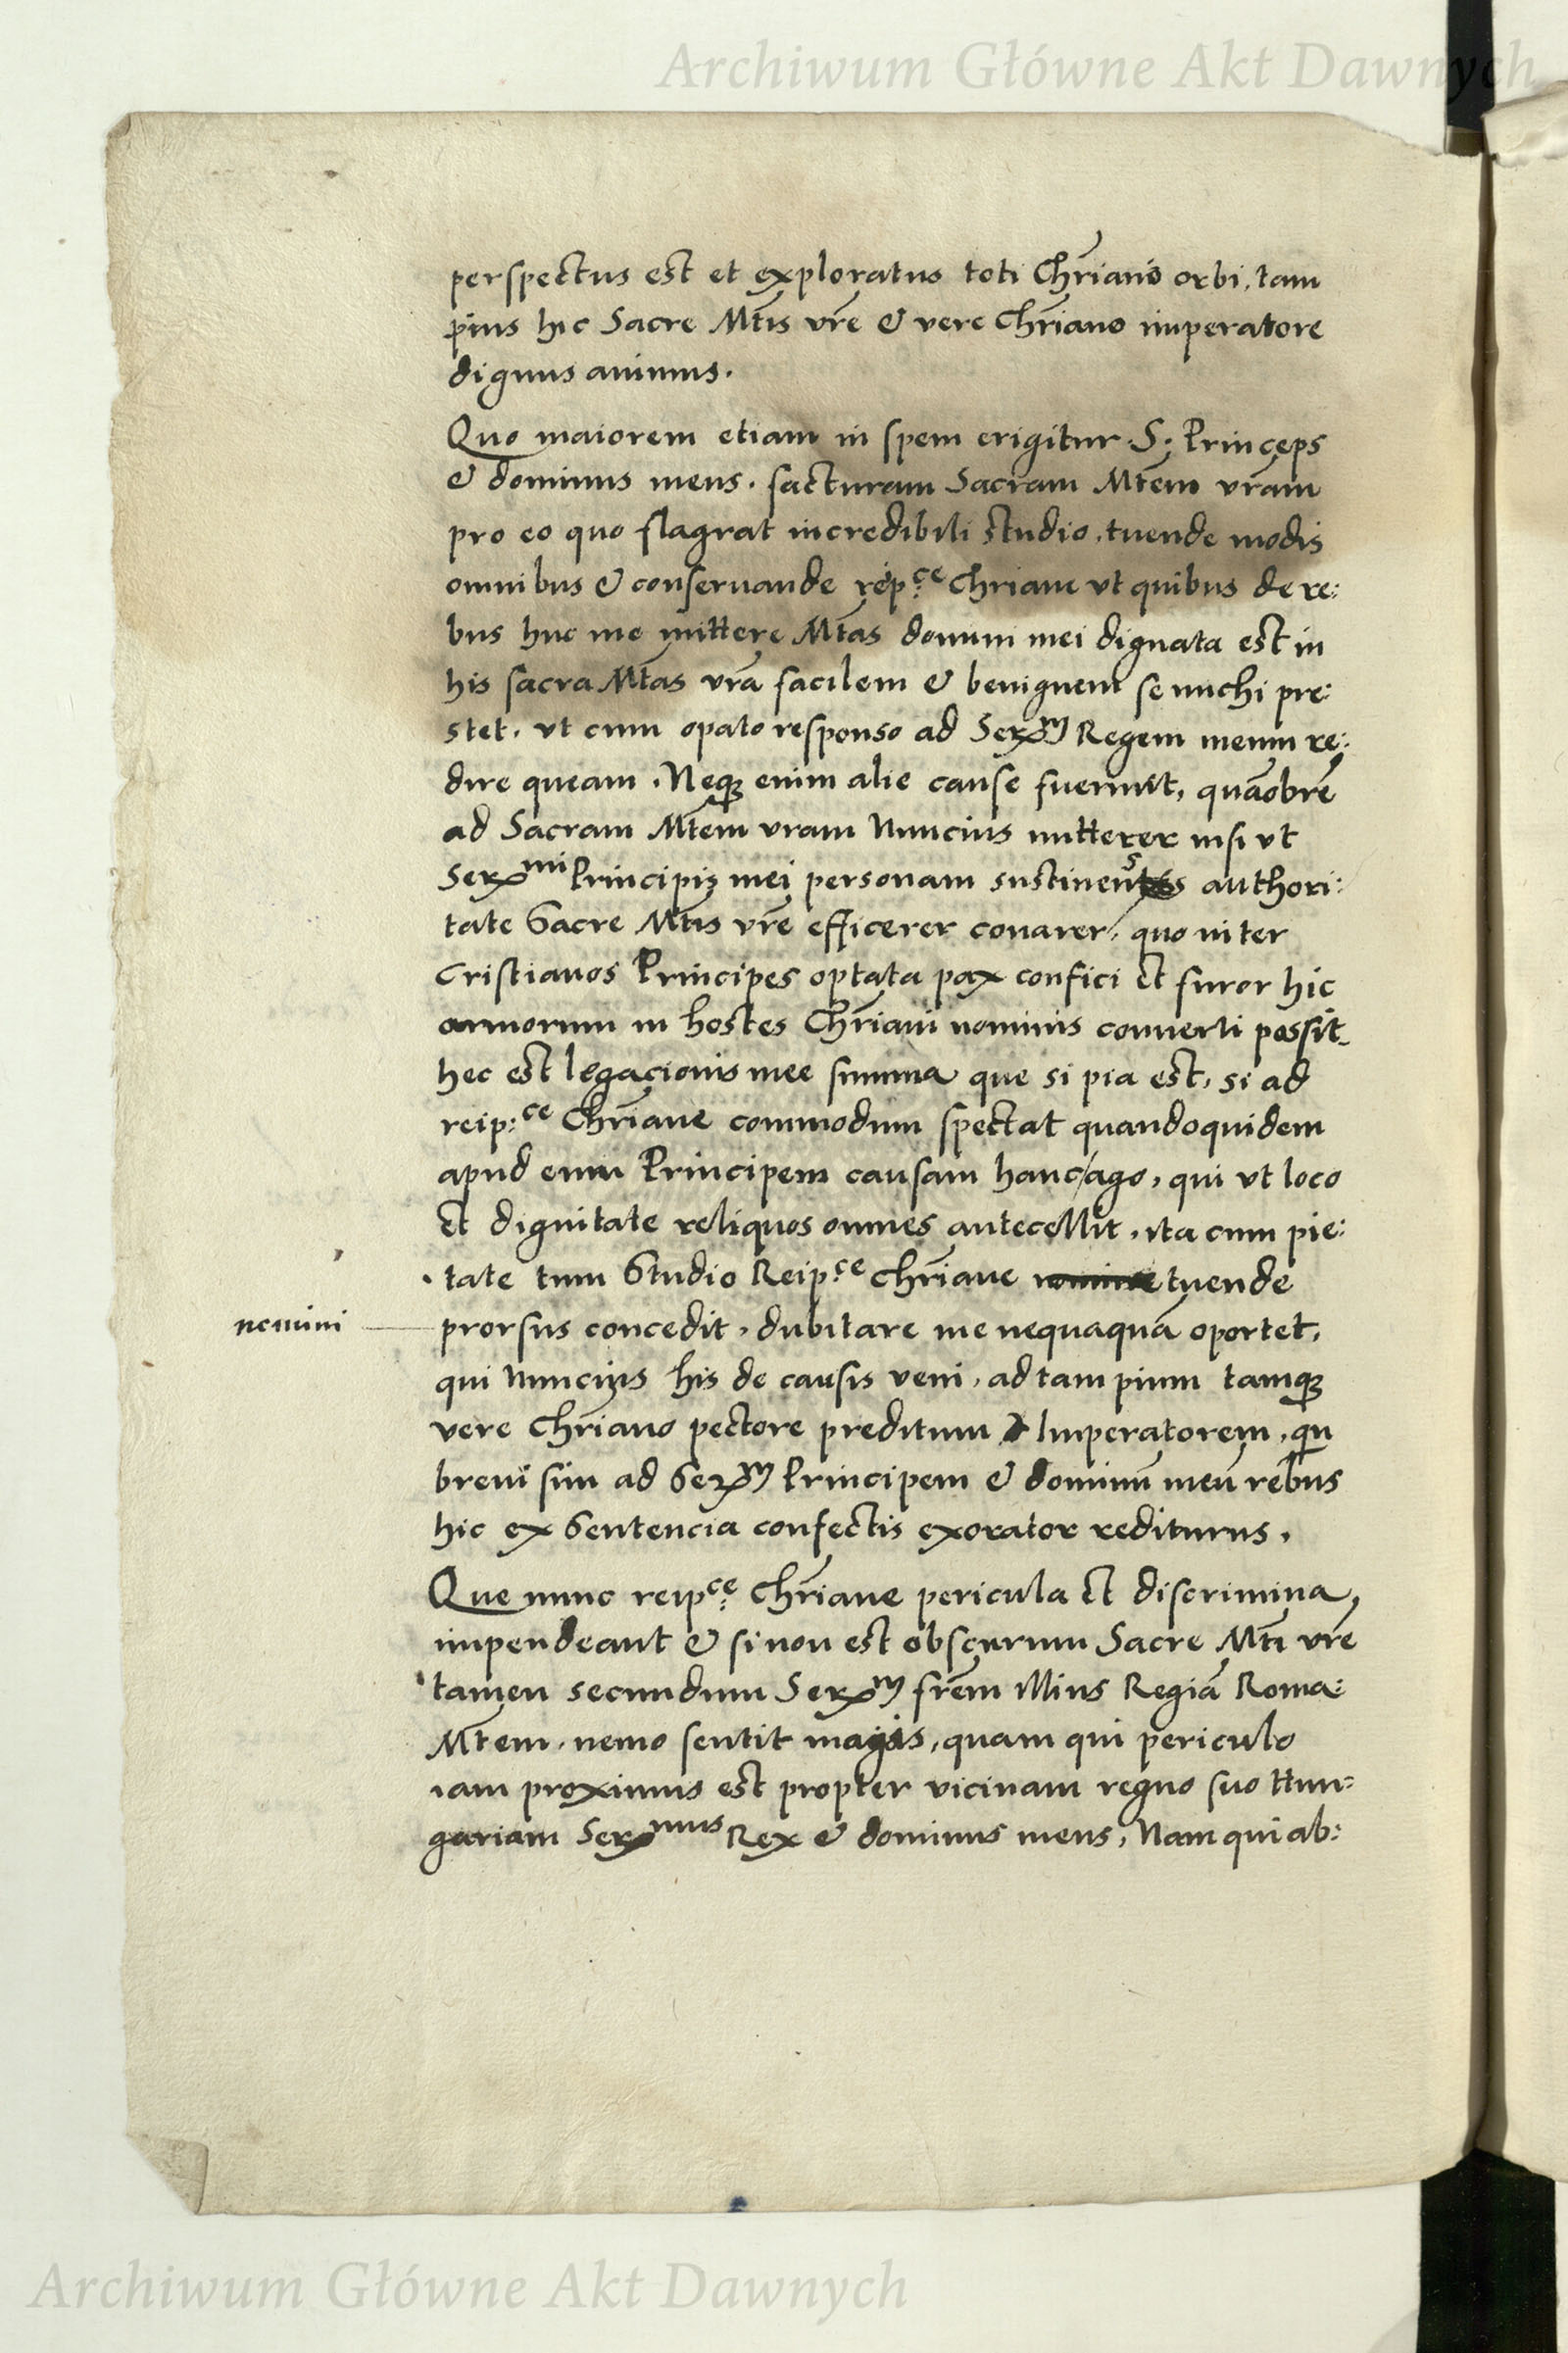 Archiwum Główne Akt Dawnych
perspectus est et exploratus toti Chr̄iano orbi, tam
pius hic Sacre Mt̄is vr̄e & vere Chr̄iano imperatore
dignus animus.
Quo maiorem etiam in spem erigitur S: Princeps
& dominus meus. facturam Sacram Mt̄em vr̄am
pro eo quo flagrat incredibili studio, tuende modis
omnibus & conseruande reip:ce Chriane vt quibus de re:
bus huc me mittere Mt̄as domini mei dignata est in
his sacra Mt̄as vr̄a facilem & benignem se michi pre:
stet, vt cum opato responso ad Serm̄ Regem meum re:
dire queam. Neq3 enim alie cause fuerunt, quāobrē
ad Sacram Mt̄em vram Nuncius mitterer nisi vt
Sermi Principis mei personam sustinens authori:
tate Sacre Mt̄is vr̄e efficerer conarer, quo inter
Cristianos Principes optata pax confici et furor hic
armorum in hostes Chr̄iani nominis conuerti possit
hec est legacionis mee summa que si pia est, si ad
reip:ce Chr̄iane commodum spectat quandoquidem
apud eum Principem causam hanc/ago, qui vt loco
et dignitate reliquos omnes antecellit, ita cum pie:
tate tum Studio Reip:ce Chr̄iane tuende
nemini
prorsus concedit, dubitare me nequaquā oportet,
qui Nuncius his de causis veni, ad tam pium tamq3
vere Chr̄iano pectore preditum Imperatorem, qn
breui sim ad Serm̄ Principem & dominū meū rebus
hic ex Sentencia confectis exorator rediturus.
Que nunc reip:ce Chr̄iane pericula et discrimina,
impendeant & si non est obscurum Sacre Mt̄i vr̄e
tamen secundum Serm̄ fr̄em illius Regiā Roma:
Mt̄em, nemo sentit magis, quam qui periculo
iam proximus est propter vicinam regno suo Hun:
gariam Sermus Rex & dominus meus, Nam qui ab:
Archiwum Główne Akt Dawnych